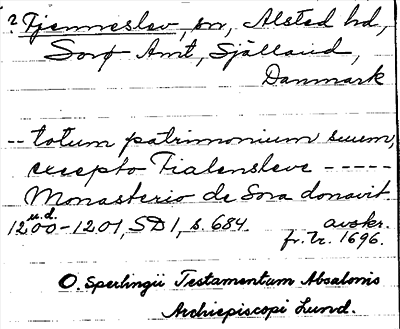 ? Fjenneslev, sn, Alsted hd,
Sorø Amt, Själland,
Danmark
-- totum patrimonium suum,
excepto Fialensleve -----
Monasterio de Sora donavit.
u.d.
1200-1201, SD 1, s. 684. avskr.
fr. år. 1696.
O. Sperlingii Testamentum Absalonis
Archiepiscopi Lund.